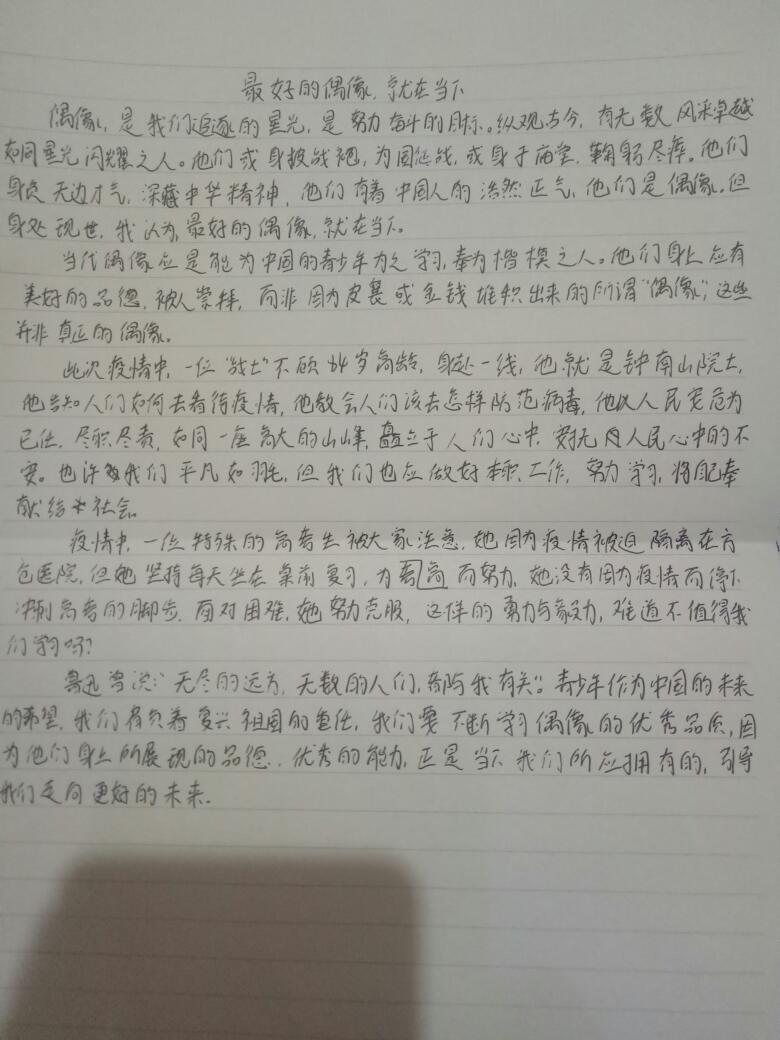 最好的偶像,就在当下
偶像,是我们追逐的星光,是努力奋斗的目标。纵观古今,有无数风采卓越
如同星光闪耀之人。他们或身披战袍,为国征战,或身于庙堂,鞠躬尽瘁。他们
身负无边才气,深藏中华精神,他们有着中国人的浩然正气,他们是偶像。但
身处现世,我认为,最好的偶像,就在当下。
当代偶像应是能为中国的青少年为之学习,奉为楷模之人。他们身上应有
美好的品德,被人崇拜,而非因为皮囊或金钱堆积出来的所谓“偶像”,这些
并非真正的偶像。
此次疫情中,一位“战士”不顾84岁高龄,身处一线,他就是钟南山院士,
他告知人们如何去看待疫情,他教会人们该去怎样防范病毒,他以人民安危为
己任,尽职尽责,如同一座高大的山峰,矗立于人们心中,人民心中的不
安。也许我们平凡如羽毛,但我们也应做好本职工作,努力学习,将自己奉
献给社会。
疫情中,一位特殊的高考生被大家注意,她因为疫情被迫隔离在方
仓医院,但她坚持每天坐在桌前复习,为高而努力,她没有因为疫情而停下
冲刺高考的脚步,面对困难,她努力克服,这样的勇力与毅力,难道不值得我
们学习吗?
鲁迅曾说:“无尽的远方,无数的人们,都与我有关”。青少年作为中国的未来
的希望,我们肩负着复兴祖国的重任,我们要不断学习偶像的优秀品质,因
为他们身上所展现的品德,优秀的能力,正是当下我们所应拥有的,引导
我们走向更好的未来.